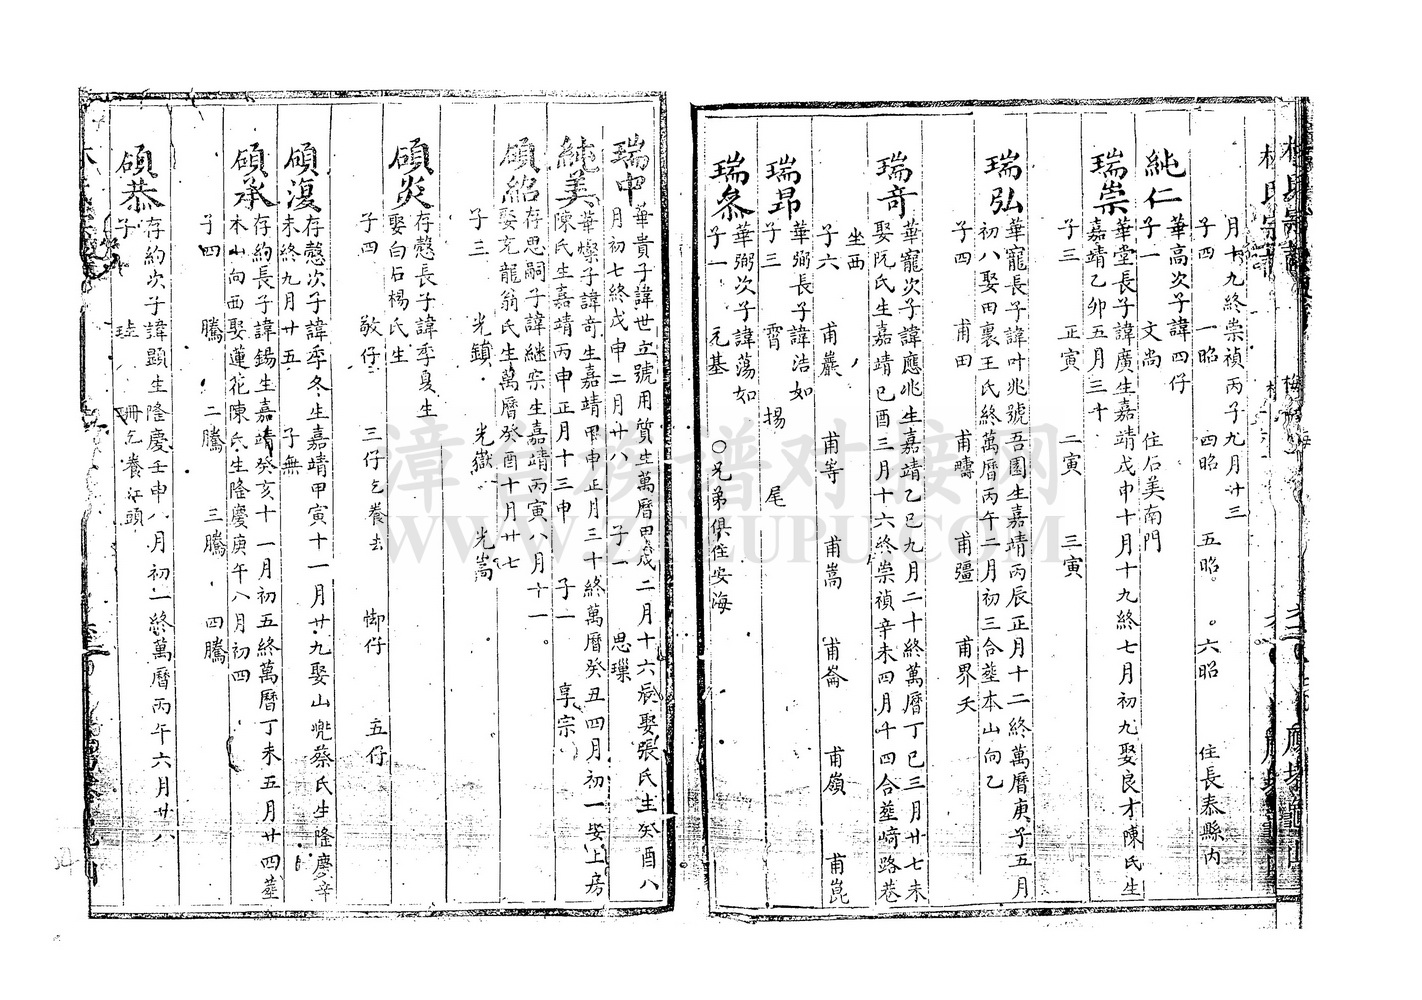 月十九終崇禎丙子九月廿三
子四 一昭 四昭 五昭 六昭 住長泰縣內
純仁
華高次子諱四仔
子一 文尚 住石美南門
瑞崇
華堂長子諱廣生嘉靖戊申十月十九終七月初九娶良才陳氏生
嘉靖乙卯五月三十
子三 正寅 二寅 三寅
瑞弘
華寵長子諱叶兆號吾園生嘉靖丙辰正月十二終萬曆庚子五月
初八娶田裏王氏終萬曆丙午二月初三合塟本山向乙
子四 甫田 甫疇 甫疆 甫界夭
瑞奇
華寵次子諱應兆生嘉靖乙巳九月二十終萬曆丁巳三月廿七未
娶阮氏生嘉靖己酉三月十六終崇禎辛未四月午四合塟﨑路巷
坐西
子六 甫巖 甫等 甫嵩 甫崙 甫嶺 甫崑
瑞昂
華弼長子諱浩如
子三 霄 揚 尾
瑞叅
華弼次子諱蕩如
子一 元基 〇兄弟俱住安海
瑞中
華貴子諱世立號用質生萬曆甲戌二月十六辰娶張氏生癸酉八
月初七終戊申二月廿八 子一 思璅
純美
華燦子諱奇生嘉靖甲申正月三十終萬曆癸丑四月初一娶上房
陳氏生嘉靖丙申正月十三申 子一 享宗
碩紹
存思嗣子諱継宗生嘉靖丙寅八月十一。
娶充龍翁氏生萬曆癸酉十月廿七
子三 光鎮 光嶽 光嵩
碩炎
存慤長子諱季夏生
娶白石楊氏生
子四 敬仔 三仔乞養去 㧕仔 五仔
碩復
存慤次子諱季冬生嘉靖甲寅十一月廿九娶山兠蔡氏生隆慶辛
未終九月廿五 子無
碩承
存約長子諱錫生嘉靖癸亥十一月初五終萬曆丁未五月廿四塟
本山向西娶蓮花陳氏生隆慶庚午八月初四
子四 騰 二騰 三騰 四騰
碩恭
存約次子諱顯生隆慶壬申八月初一終萬曆丙午六月廿八
子 珪 珊乞養江頭
漳台族谱对接网
WWW.ZTZUPU.COM